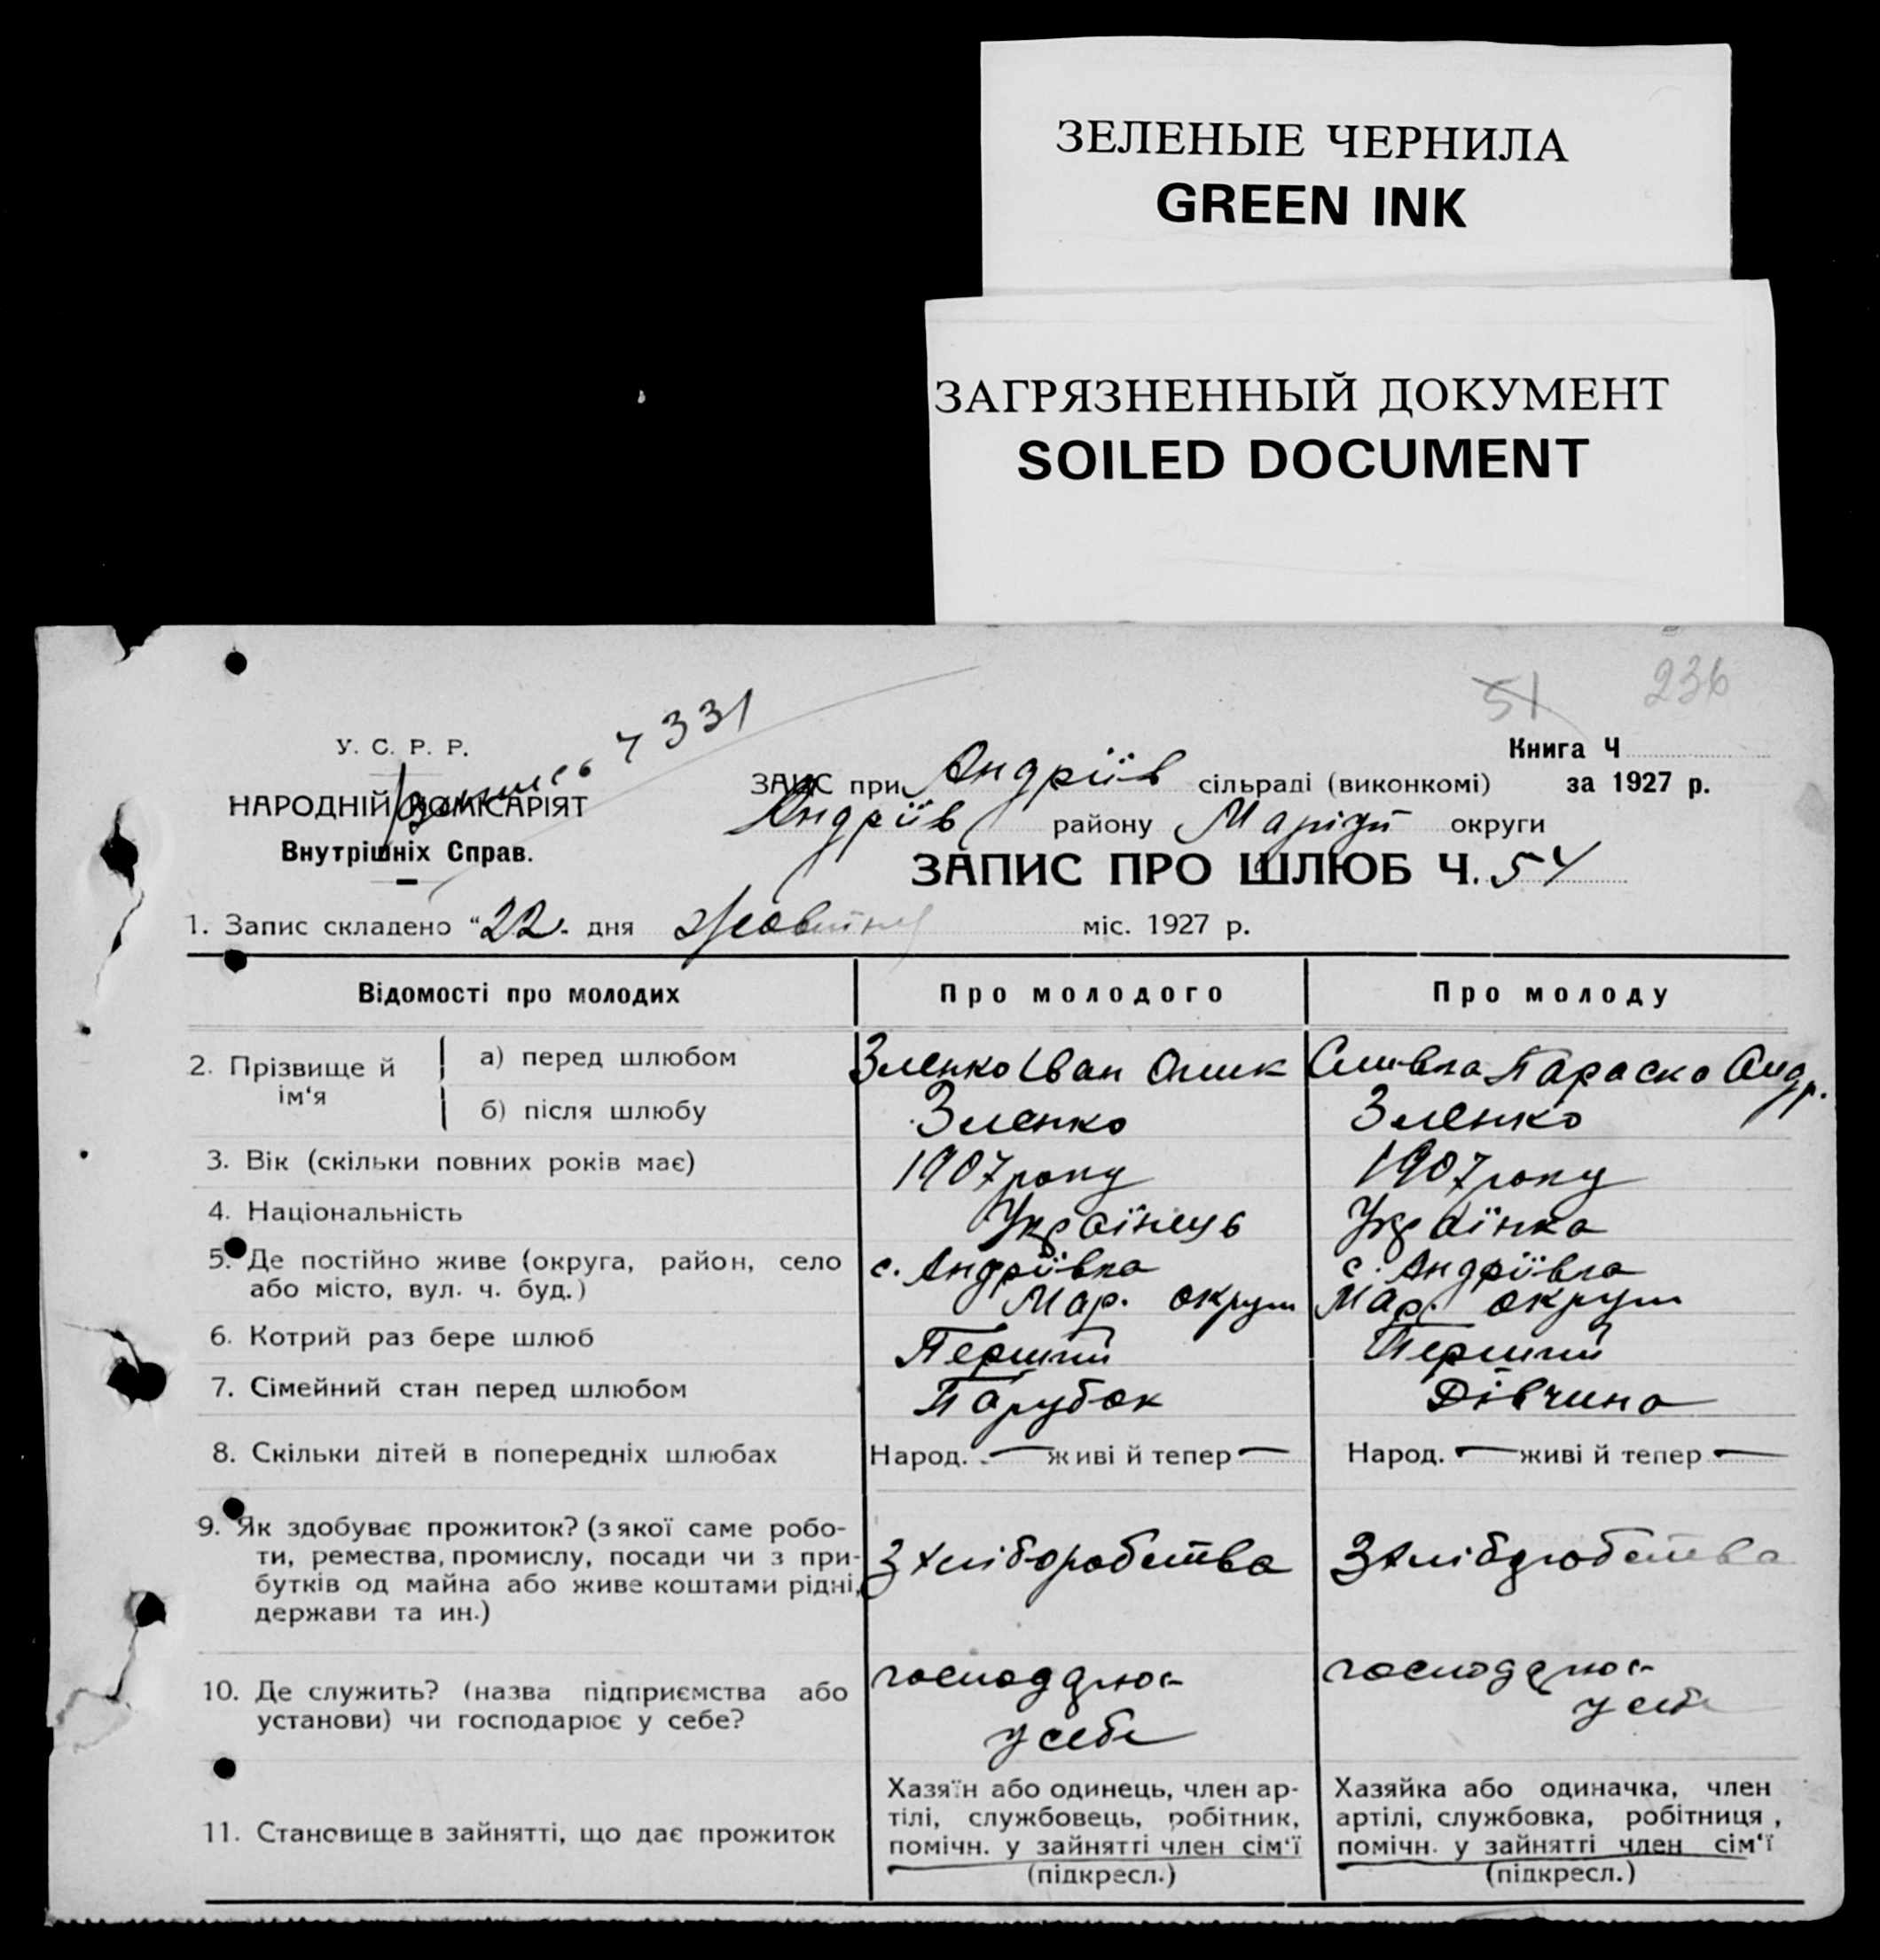 ЗЕЛЕНЫЕ ЧЕРНИЛА
GREEN INK
ЗАГРЯЗНЕННЫЙ ДОКУМЕНТ
SOILED DOCUMENT
51 236
У. С. Р. Р.
НАРОДНІЙ КОМІСАРІЯТ
Внутрішніх Справ.
7331
Книга Ч
ЗАПИС при Андріїв сільраді (виконкомі) за 1927 р.
Андріїв району Маріуп округи
ЗАПИС ПРО ШЛЮБ Ч. 54
1. Запис складено "22" дня Жовтня міс. 1927 р.
Відомості про молодих Про молодого Про молоду
2. Прізвище й ім'я а) перед шлюбом Зленко Іван Олик Сливка Параска Андр.
б) після шлюбу Зленко Зленко
3. Вік (скільки повних років має) 1907 року 1907 року
4. Національність Українець Українка
5. Де постійно живе (округа, район, село с. Андріївка с. Андріївка
або місто, вул. ч. буд.) Мар. округи Мар. округи
6. Котрий раз бере шлюб Перший Перший
7. Сімейний стан перед шлюбом Парубок Дівчина
8. Скільки дітей в попередніх шлюбах Народ. — живі й тепер — Народ. — живі й тепер —
9. Як здобуває прожиток? (з якої саме робо-
ти, ремества, промислу, посади чи з при- З хліборобства З хліборобства
бутків од майна або живе коштами рідні,
держави та ин.)
10. Де служить? (назва підприємства або
установи) чи господарює у себе? господарює у себе господарює у себе
11. Становище в зайнятті, що дає прожиток
Хазяїн або одинець, член ар-
тілі, службовець, робітник,
помічн. у зайнятті член сім'ї
(підкресл.)
Хазяйка або одиначка, член
артілі, службовка, робітниця,
помічн. у зайнятті член сім'ї
(підкресл.)